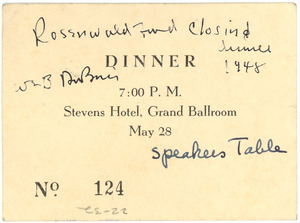 Rosenwald Fund Closing
Dinner
1948
DINNER
W E B DuBois
7:00 P. M.
Stevens Hotel, Grand Ballroom
May 28
Speakers Table
No 124